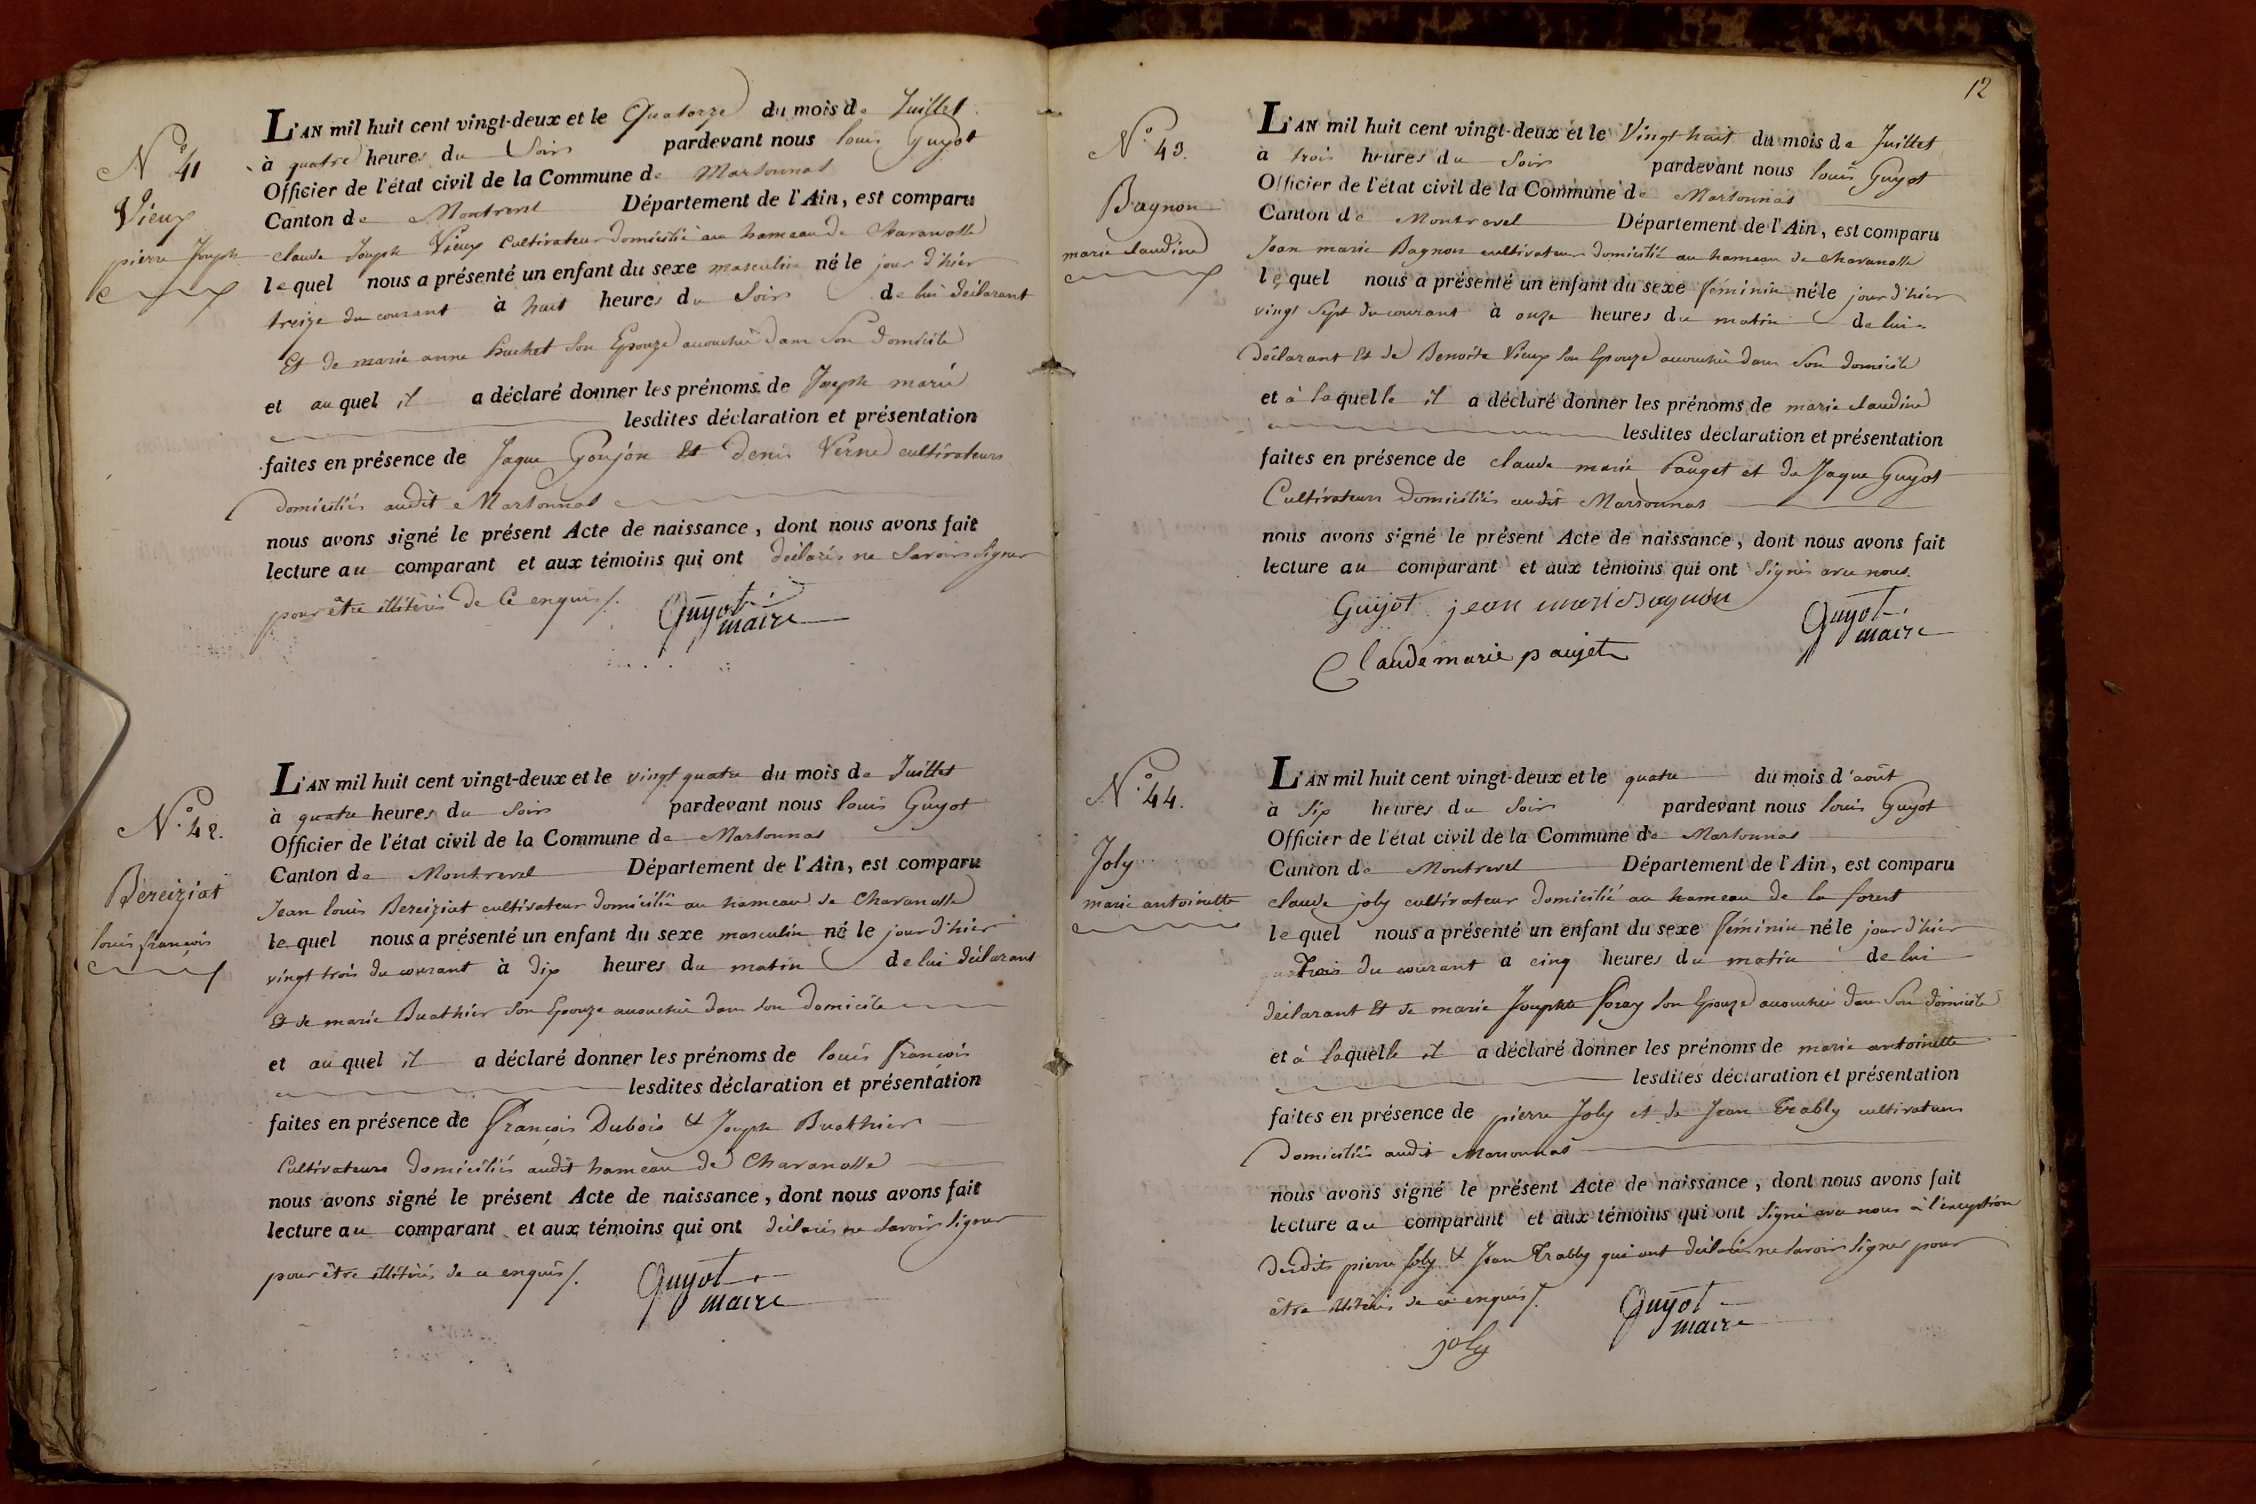 N° 41
Vieux
pierre Joseph
L'AN mil huit cent vingt-deux et le Quatorze du mois de Juillet
à quatre heures du Soir pardevant nous louis Guyot
Officier de l'état civil de la Commune de Marsonnas
Canton de Montrevel Département de l'Ain, est comparu
claude Joseph Vieux Cultivateur domicilié au hameau de Charanolle
lequel nous a présenté un enfant du sexe masculin né le jour d'hier
treize du courant à huit heures du Soir de lui déclarant
Et de marie anne Buchet Son Epouze accouchée dans Son domicile
et auquel il a déclaré donner les prénoms de Joseph marie
lesdites déclaration et présentation
faites en présence de Jaque Goujon Et denis Verne cultivateurs
domiciliés audit Marsonnas
nous avons signé le présent Acte de naissance, dont nous avons fait
lecture au comparant et aux témoins qui ont déclarés ne Savoir Signer
pour être illitérés de Ce enquis /.
Guyot
maire
N° 42.
Bereiziat
louis françois
L'AN mil huit cent vingt-deux et le vingt quatre du mois de Juillet
à quatre heures du Soir pardevant nous louis Guyot
Officier de l'état civil de la Commune de Marsonnas
Canton de Montrevel Département de l'Ain, est comparu
Jean louis Bereiziat cultivateur domicilié au hameau de Charanolle
lequel nous a présenté un enfant du sexe masculin né le jour d'hier
vingt trois du courant à dix heures du matin de lui déclarant
Et de marie Buathier Son Epouze accouchée dans Son domicile
et auquel il a déclaré donner les prénoms de louis françois
lesdites déclaration et présentation
faites en présence de François Dubois & Joseph Buathier
Cultivateurs domiciliés audit hameau de Charanolle
nous avons signé le présent Acte de naissance, dont nous avons fait
lecture au comparant et aux témoins qui ont déclarés ne Savoir Signer
pour être illitérés de ce enquis /.
Guyot
maire
12
N° 43.
Bagnon
marie claudine
L'AN mil huit cent vingt-deux et le Vingt huit du mois de Juillet
à trois heures du Soir pardevant nous louis Guyot
Officier de l'état civil de la Commune de Marsonnas
Canton de Montrevel Département de l'Ain, est comparu
Jean marie Bagnon cultivateur domicilié au hameau de charanolle
lequel nous a présenté un enfant du sexe féminin né le jour d'hier
vingt Sept du courant à onze heures du matin de lui
déclarant Et de Benoite Vieux Son Epouze accouchée dans Son domicile
et à laquelle il a déclaré donner les prénoms de marie claudine
lesdites déclaration et présentation
faites en présence de claude marie Pauget et de Jaque Guyot
Cultivateurs domiciliés audit Marsonnas
nous avons signé le présent Acte de naissance, dont nous avons fait
lecture au comparant et aux témoins qui ont Signés avec nous.
Guijot jean mari Bagnon
Guyot
maire
Claude marie paujet
N° 44.
Joly
marie antoinette
L'AN mil huit cent vingt-deux et le quatre du mois d'août
à Six heures du Soir pardevant nous louis Guyot
Officier de l'état civil de la Commune de Marsonnas
Canton de Montrevel Département de l'Ain, est comparu
claude joly cultivateur domicilié au hameau de la forest
lequel nous a présenté un enfant du sexe féminin né le jour d'hier
Trois du courant à cinq heures du matin de lui
déclarant Et de marie Josephte foray Son Epouze accouchée dans Son domicile
et à laquelle il a déclaré donner les prénoms de marie antoinette
lesdites déclaration et présentation
faites en présence de pierre Joly et de Jean Trably cultivateurs
domiciliés audit Marsonnas
nous avons signé le présent Acte de naissance, dont nous avons fait
lecture au comparant et aux témoins qui ont Signé avec nous à l'exception
desdits pierre Joly & Jean Trably qui ont déclarés ne Savoir Signer pour
être illitérés de ce enquis /.
Guyot
maire
joly